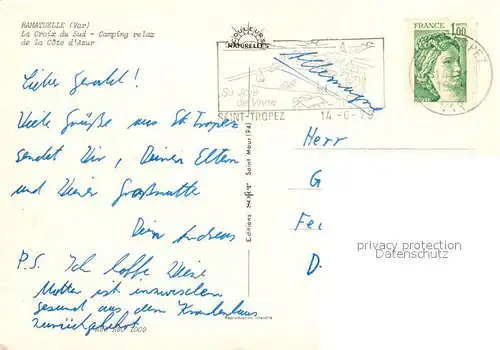 RAMATUELLE (Var)
La Croix du Sud - Camping relax
de la Côte d'Azur
COULEURS
NATURELLES
Sa Joie
de Vivre
SAINT-TROPEZ
14-6-79
Allemagne
FRANCE
1,00
POSTES
Lieber Gerald!
Viele Grüße aus St. Tropez
sendet Dir, Deinen Eltern
und Deiner Großmutter
Dein Andreas
P.S. Ich hoffe Deine
Mutter ist inzwischen
gesund aus dem Krankenhaus
zurückgekehrt.
Editions SOFT Saint Maur (94)
Herr
G
Fe
D.
privacy protection
Datenschutz
Reproduction interdite
1009